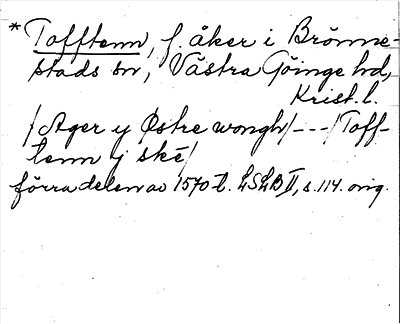 * Tofftenn, f. åker i Brönne-
stads sn, Västra Göinge hd,
Krist. l.
/Ager y Østre wongh/---/Toff-
tenn j skē/
förra delen av 1570-t. LSLB II, s. 114. orig.